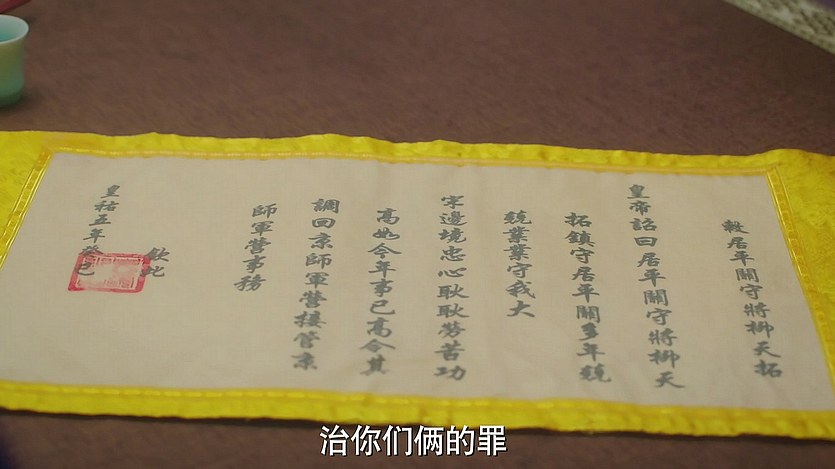 敕居平關守將柳天拓
皇帝詔曰居平關守將柳天
拓鎮守居平關多年兢
兢業業守我大
宋邊境忠心耿耿勞苦功
高如今年事已高令其
調回京師軍營接管京
師軍營事務
欽此
皇祐五年癸巳
治你们俩的罪